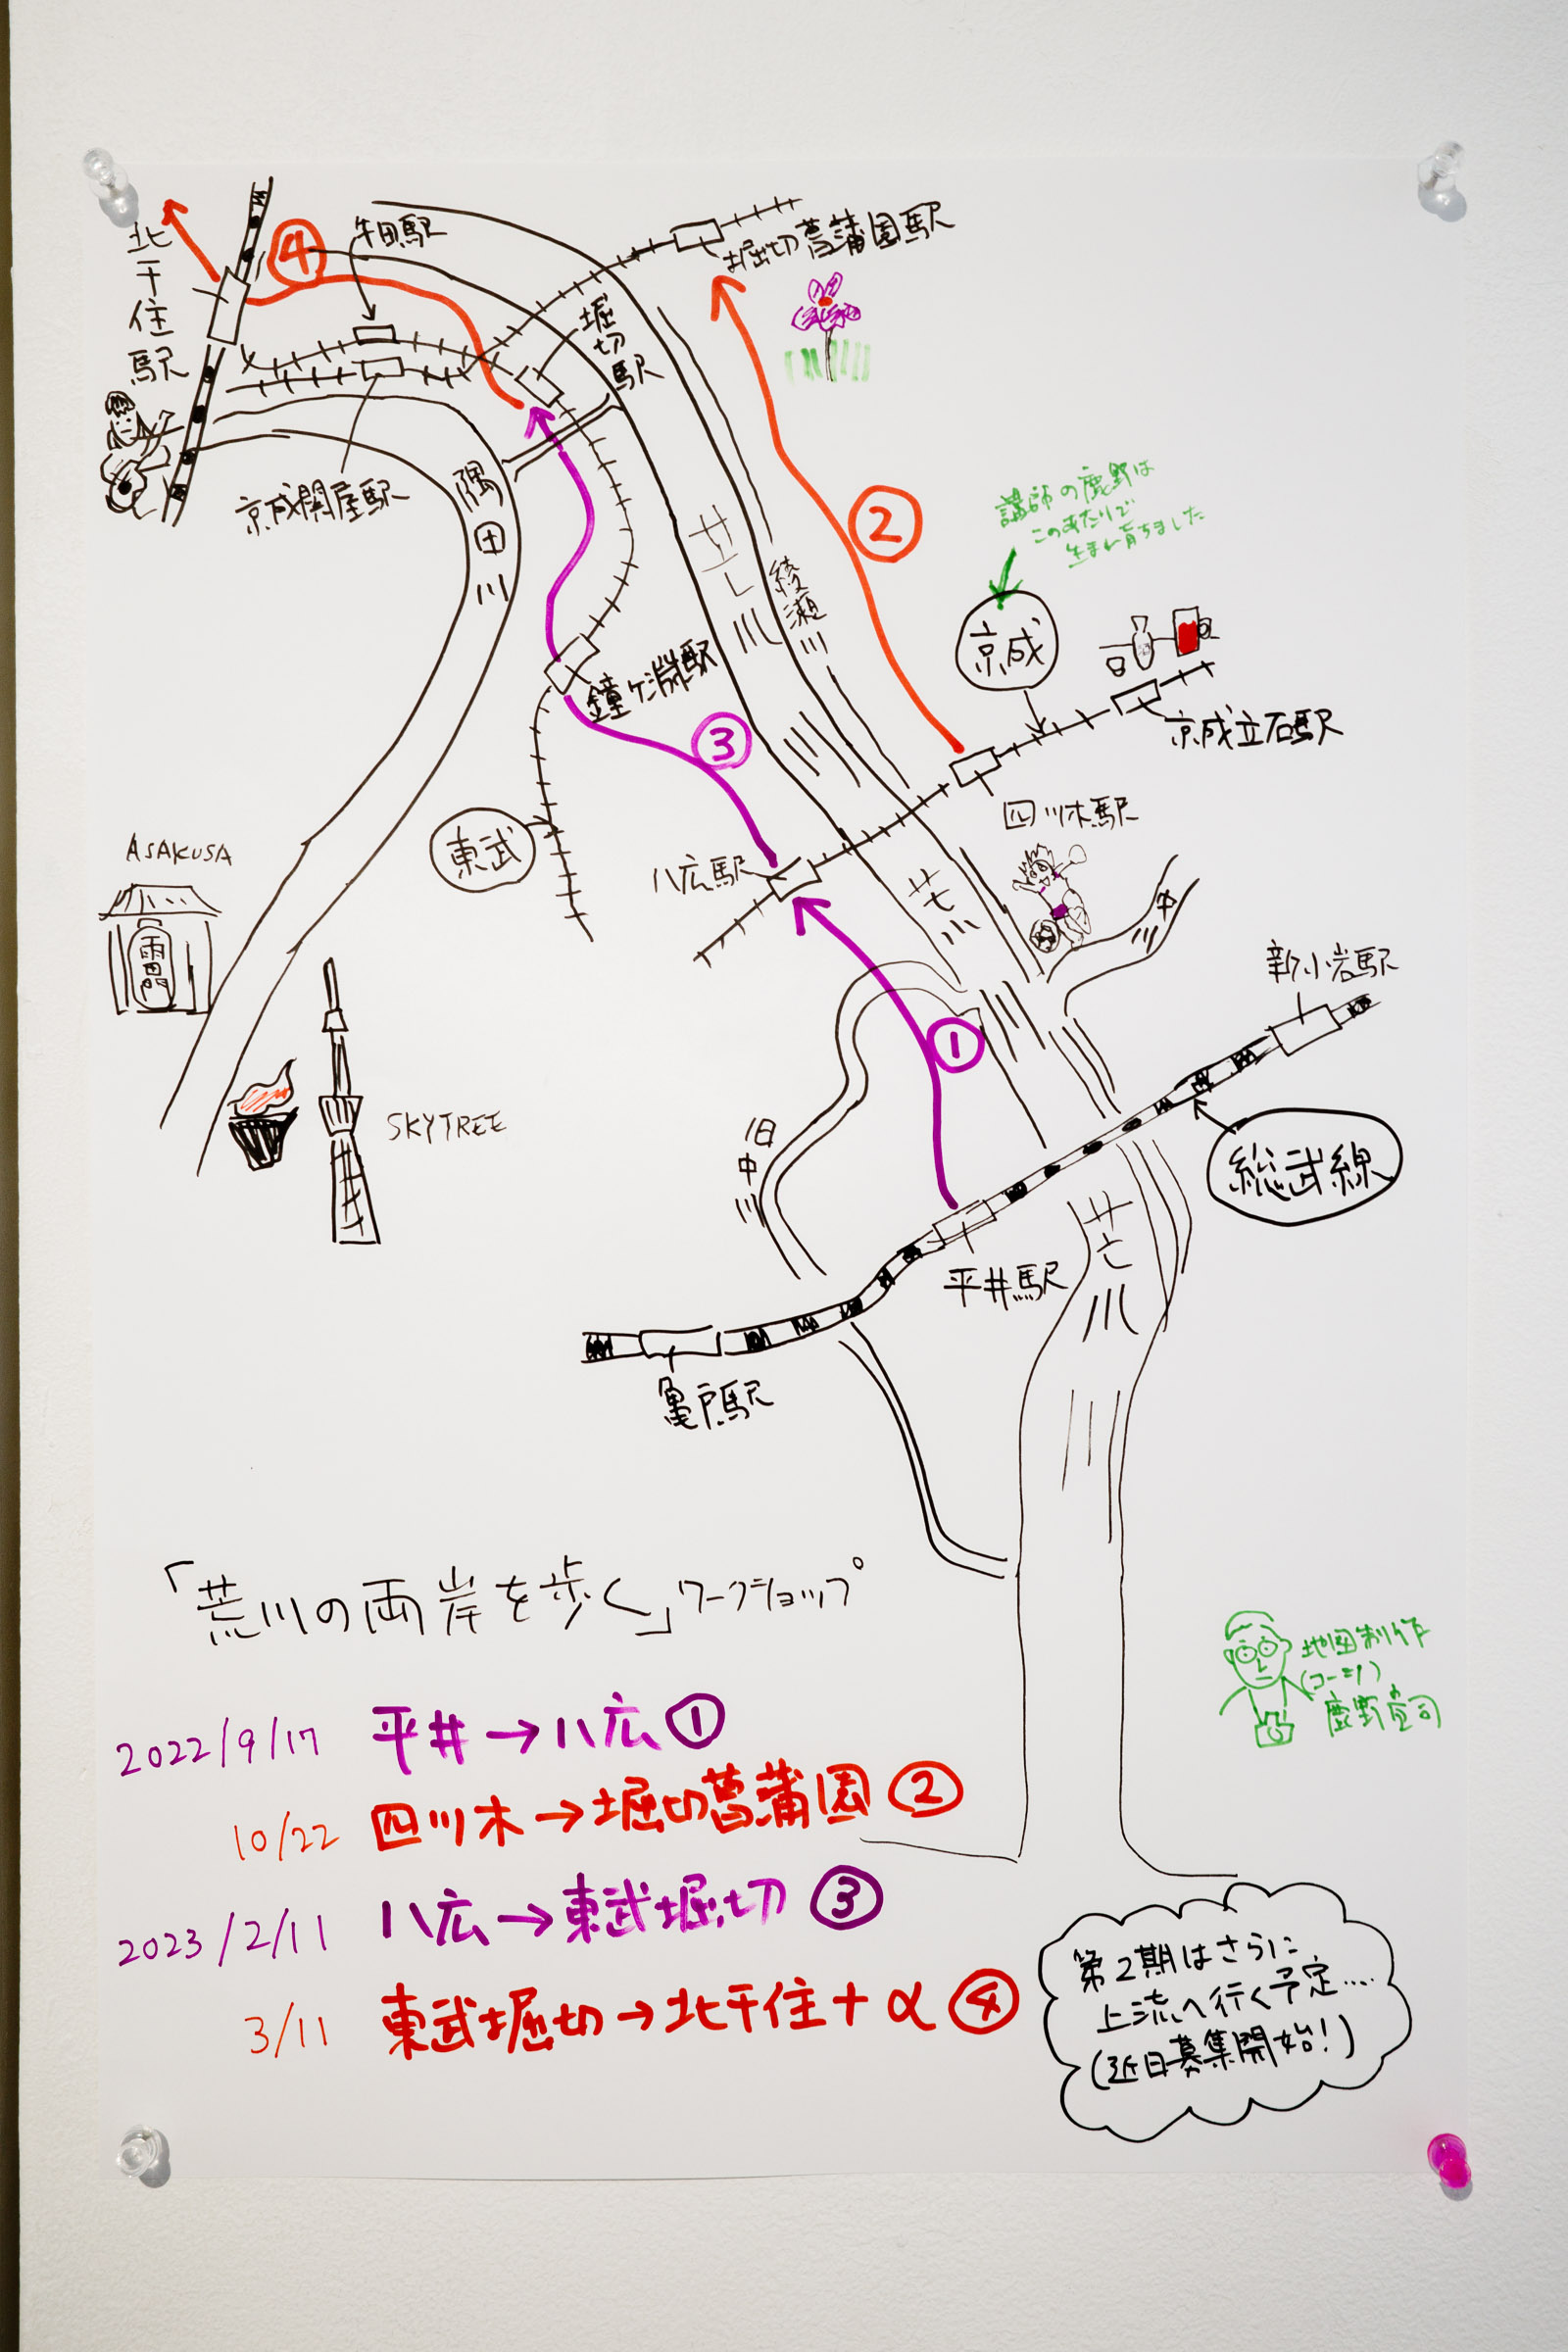 北千住駅
④
牛田駅
堀切菖蒲園駅
堀切駅
京成関屋駅
隅田川
荒川
綾瀬川
②
講師の鹿野は
このあたりで
生まれ育ちました
京成
京成立石駅
四ツ木駅
鐘ヶ淵駅
③
東武
八広駅
荒川
中川
新小岩駅
ASAKUSA
雷門
SKYTREE
①
旧中川
総武線
荒川
平井駅
亀戸駅
「荒川の両岸を歩く」ワークショップ
2022/9/17 平井→八広①
10/22 四ツ木→堀切菖蒲園②
2023/2/11 八広→東武堀切③
3/11 東武堀切→北千住+α④
地図制作
(コーチ)
鹿野貴司
第2期はさらに
上流へ行く予定.....
(近日募集開始!)